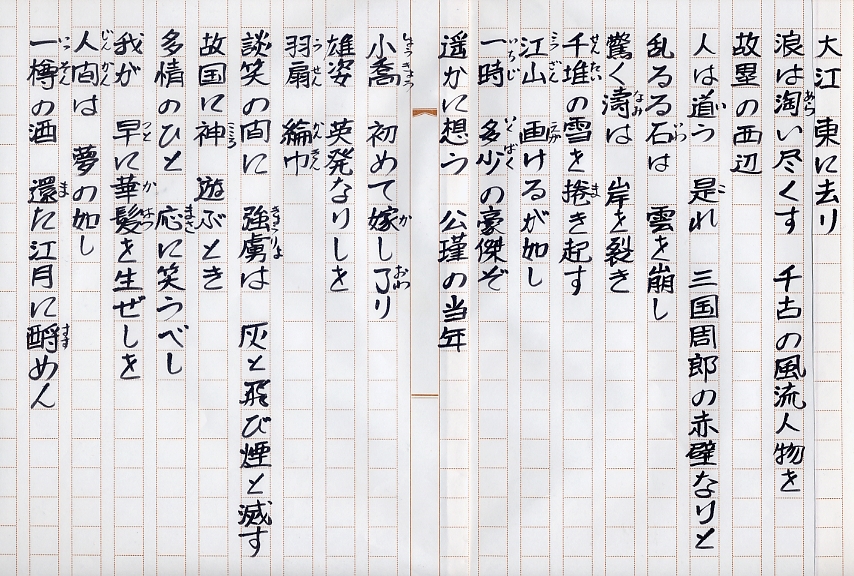 大江　東に去り
浪は淘い尽くす　千古の風流人物を
故塁の西辺
人は道う　是れ　三国周郎の赤壁なりと
乱るる石は　雲を崩し
驚く濤は　岸を裂き
千堆の雪を捲き起す
江山　画けるが如し
一時　多少の豪傑ぞ
遥かに想う　公瑾の当年
小喬　初めて嫁し了り
雄姿　英発なりしを
羽扇　綸巾
談笑の間に　強虜は　灰と飛び煙と滅す
故国に神　遊ぶとき
多情のひと　応に笑うべし
我が　早に華髪を生ぜしを
人間は　夢の如し
一樽の酒　還た江月に酹めん